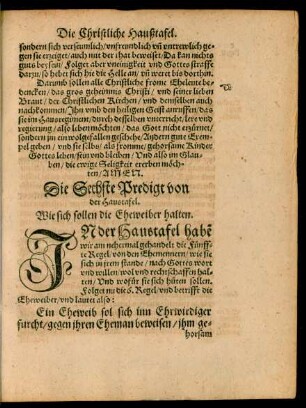 Die Christliche Haußtafel.
sondern sich verseumlich/ vnfreundlich vñ vntrewlich ge-
gen sie erzeiget/ auch mit der that beweiset/ Da kan nichts
guts bey sein/ Folget aber vneinigkeit vnd Gottes straffe
darzu/ so hebet sich hie die Helle an/ vñ weret bis dorthin.
Darumb sollen alle Christliche frome Eheleute be-
dencken/ das gros geheimnis Christi/ vnd seiner lieben
Braut/ der Christlichen Kirchen/ vnd demselben auch
nachkommen/ Ihn vnd den heiligen Geist anruffen/ das
sie im Hausregiment/ durch desselben vnterricht/ lere vnd
regierung/ also leben möchten/ das Gott nicht erzürnet/
sondern jm ein wolgefallen geschehe/ Andern gute Exem-
pel geben/ vnd sie selbs/ als fromme/ gehorsame Kinder
Gottes leben/ sein vnd bleiben/ Vnd also im Glau-
ben/ die ewige Seligkeit ererben möch-
ten/ AMEN.
Die Sechste Predigt von
der Haustafel.
Wie sich sollen die Eheweiber halten.
IN der Haustafel habē
wir am nehermal gehandelt die Fünff-
te Regel/ von den Ehemennern/ wie sie
sich in jrem stande/ nach Gottes wort
vnd willen/ wol vnd rechtschaffen hal-
ten/ Vnd wofür sie sich hüten sollen.
Folget nu die 6. Regel/ vnd betrifft die
Eheweiber/ vnd lautet also:
Ein Eheweib sol sich inn Ehrwirdiger
furcht/ gegen jhren Eheman beweisen/ jhm ge-
horsam